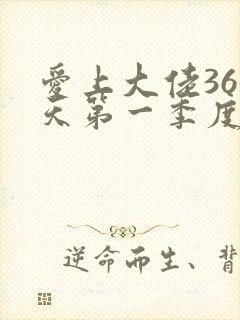 愛上大佬36
天第一季度
逆命而生、背